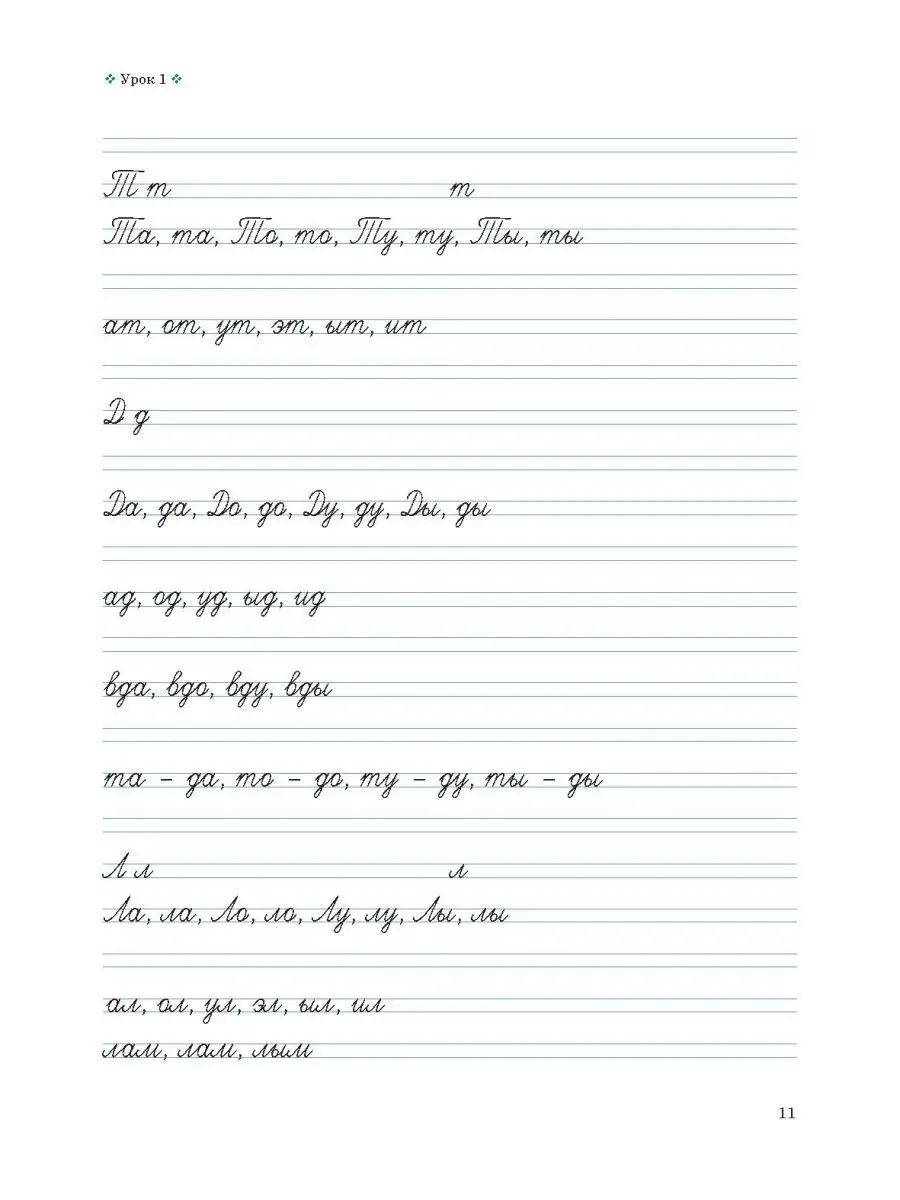 ❖ Урок 1 ❖
Т т т
Та, та, То, то, Ту, ту, Ты, ты
ат, от, ут, эт, ыт, ит
Д д
Да, да, До, до, Ду, ду, Ды, ды
ад, од, уд, ыд, ид
вда, вдо, вду, вды
та – да, то – до, ту – ду, ты – ды
Л л л
Ла, ла, Ло, ло, Лу, лу, Лы, лы
ал, ол, ул, эл, ыл, ил
лам, лам, лым
11